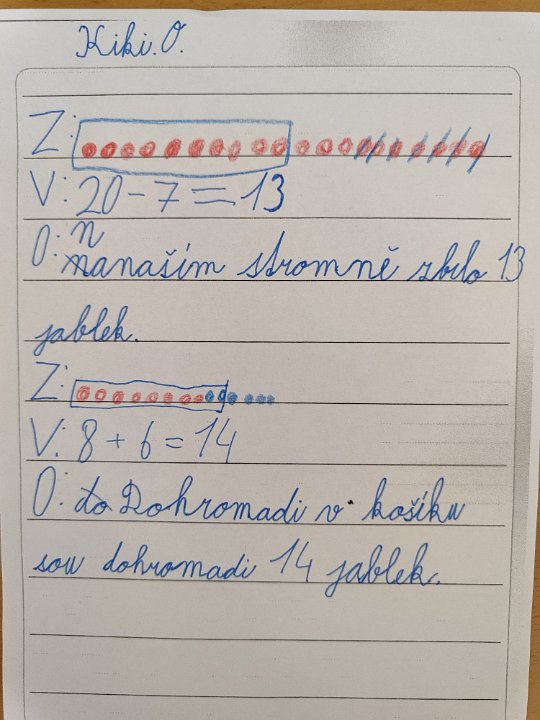 Kiki. O.
Z:
V: 20 - 7 = 13
O: n
nanaším stromně zbilo 13
jablek.
Z:
V: 8 + 6 = 14
O: do Dohromadi v košíku
sou dohromadi 14 jablek.